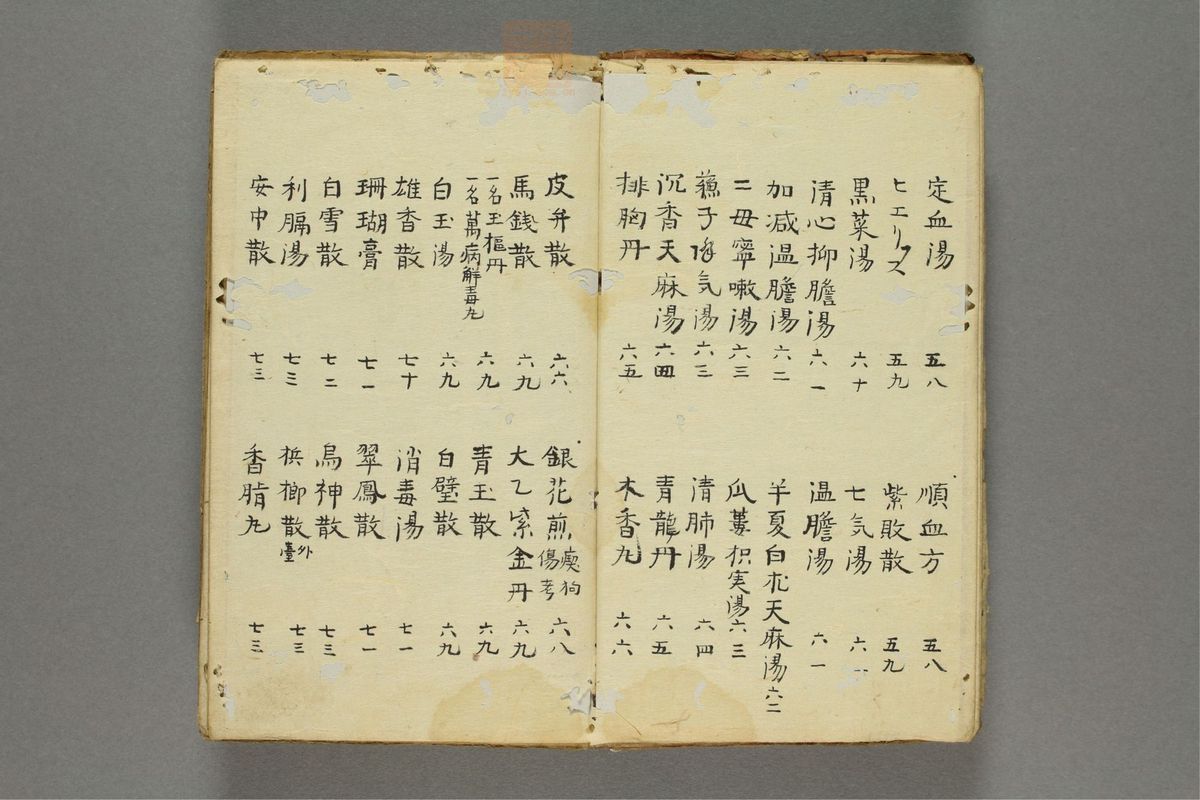 定血湯 五八
順血方 五八
五九
紫敗散 五九
黒菜湯 六十
七気湯 六一
清心抑膽湯 六一
温膽湯 六一
加减温膽湯 六二
半夏白朮天麻湯 六二
二母寧嗽湯 六三
瓜蔞枳実湯 六三
蘓子降気湯 六三
清肺湯 六四
沉香天麻湯 六四
青龍丹 六五
排胸丹 六五
木香丸 六六
皮弁散 六六
銀花煎 瘈狗傷考 六八
馬銭散 六九
大乙紫金丹 六九
一名玉樞丹
一名萬病解毒丸 六九
青玉散 六九
白玉湯 六九
白璧散 六九
雄香散 七十
消毒湯 七一
珊瑚膏 七一
翠鳳散 七一
白雪散 七二
烏神散 七三
利膈湯 七三
梹榔散 外臺 七三
安中散 七三
香脂丸 七三